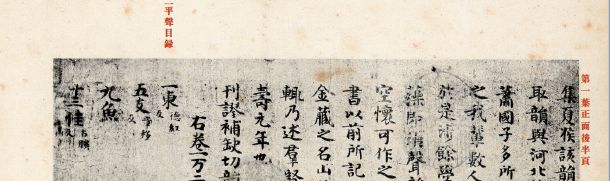 第一葉正面後半頁
集夏侯該韻
取韻與河北
蕭國子多所
之我輩數人
於是餘學
藻即消聲
空懷可作之
書以前所記
金藏之名山
輒乃述羣
壽元年也
刊謬補缺切韻
右卷一万二
一平聲目録
一東德紅反
五支章移反
九魚
十三佳古膎反